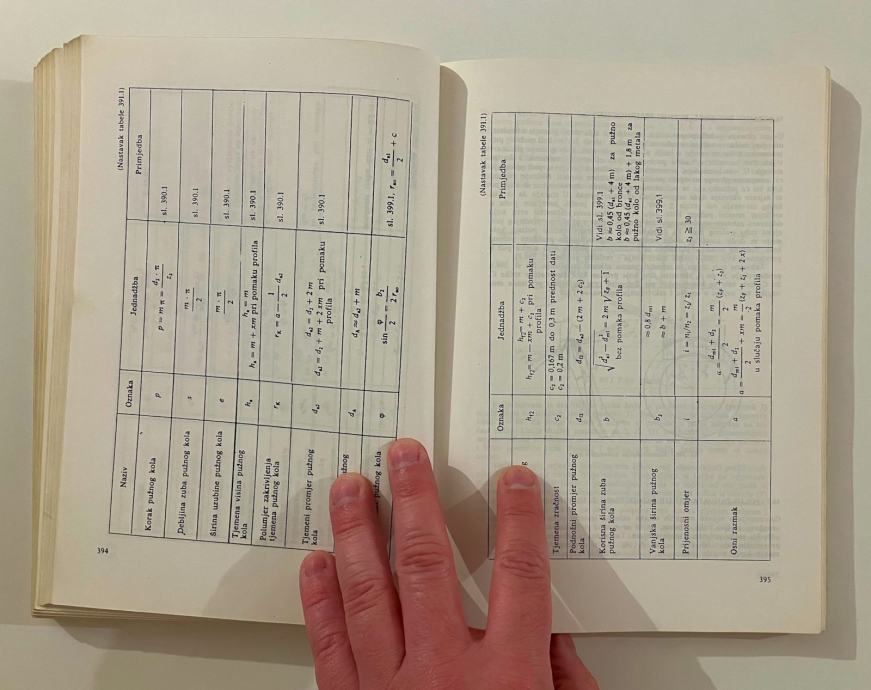 394
(Nastavak tabele 391.1)
Naziv Oznaka Jednadžba Primjedba
Korak pužnog kola p p = m π = d₂ · π / z₂ sl. 390.1
Debljina zuba pužnog kola s m · π / 2 sl. 390.1
Širina uzubine pužnog kola e m · π / 2 sl. 390.1
Tjemena visina pužnog
kola
hₖ
hₖ = m
hₖ = m + xm pri pomaku profila
sl. 390.1
Polumjer zakrivljenja
tjemena pužnog kola
r_K
r_K = a − 1/2 dₖ₂
sl. 390.1
Tjemeni promjer pužnog
kola
dₖ₂
dₖ₂ = d₂ + 2 m
dₖ₂ = d₂ + m + 2 xm pri pomaku
profila
sl. 390.1
pužnog
d_A
d_A ≈ dₖ₂ + m
pužnog kola
φ
sin φ/2 = b₂ / 2 r
sl. 399.1,
(Nastavak tabele 391.1)
Oznaka Jednadžba Primjedba
g
h_f2
= m + c₂
= m − xm + c₂ pri pomaku
profila
Tjemena zračnost
c₂
c₂ = 0,167 m do 0,3 m prednost dati
c₂ = 0,2 m
Podnožni promjer pužnog
kola
d_f2
d_f2 = − (2 m + 2 c₂)
Korisna širina zuba
pužnog kola
b
bez pomaka profila
Vidi sl. 399.1
b ≈ 0,45 (+ 4 m) za pužno
kolo od bronce
b ≈ 0,45 (+ 4 m) + 1,8 m za
pužno kolo od lakog metala
Vanjska širina pužnog
kola
b₂
≈ 0,8
≈ b + m
Vidi sl. 399.1
Prijenosni omjer
i
i = n₁/n₂ = z₂/z₁
z₂ ≧ 30
Osni razmak
a
u slučaju pomaka profila
395